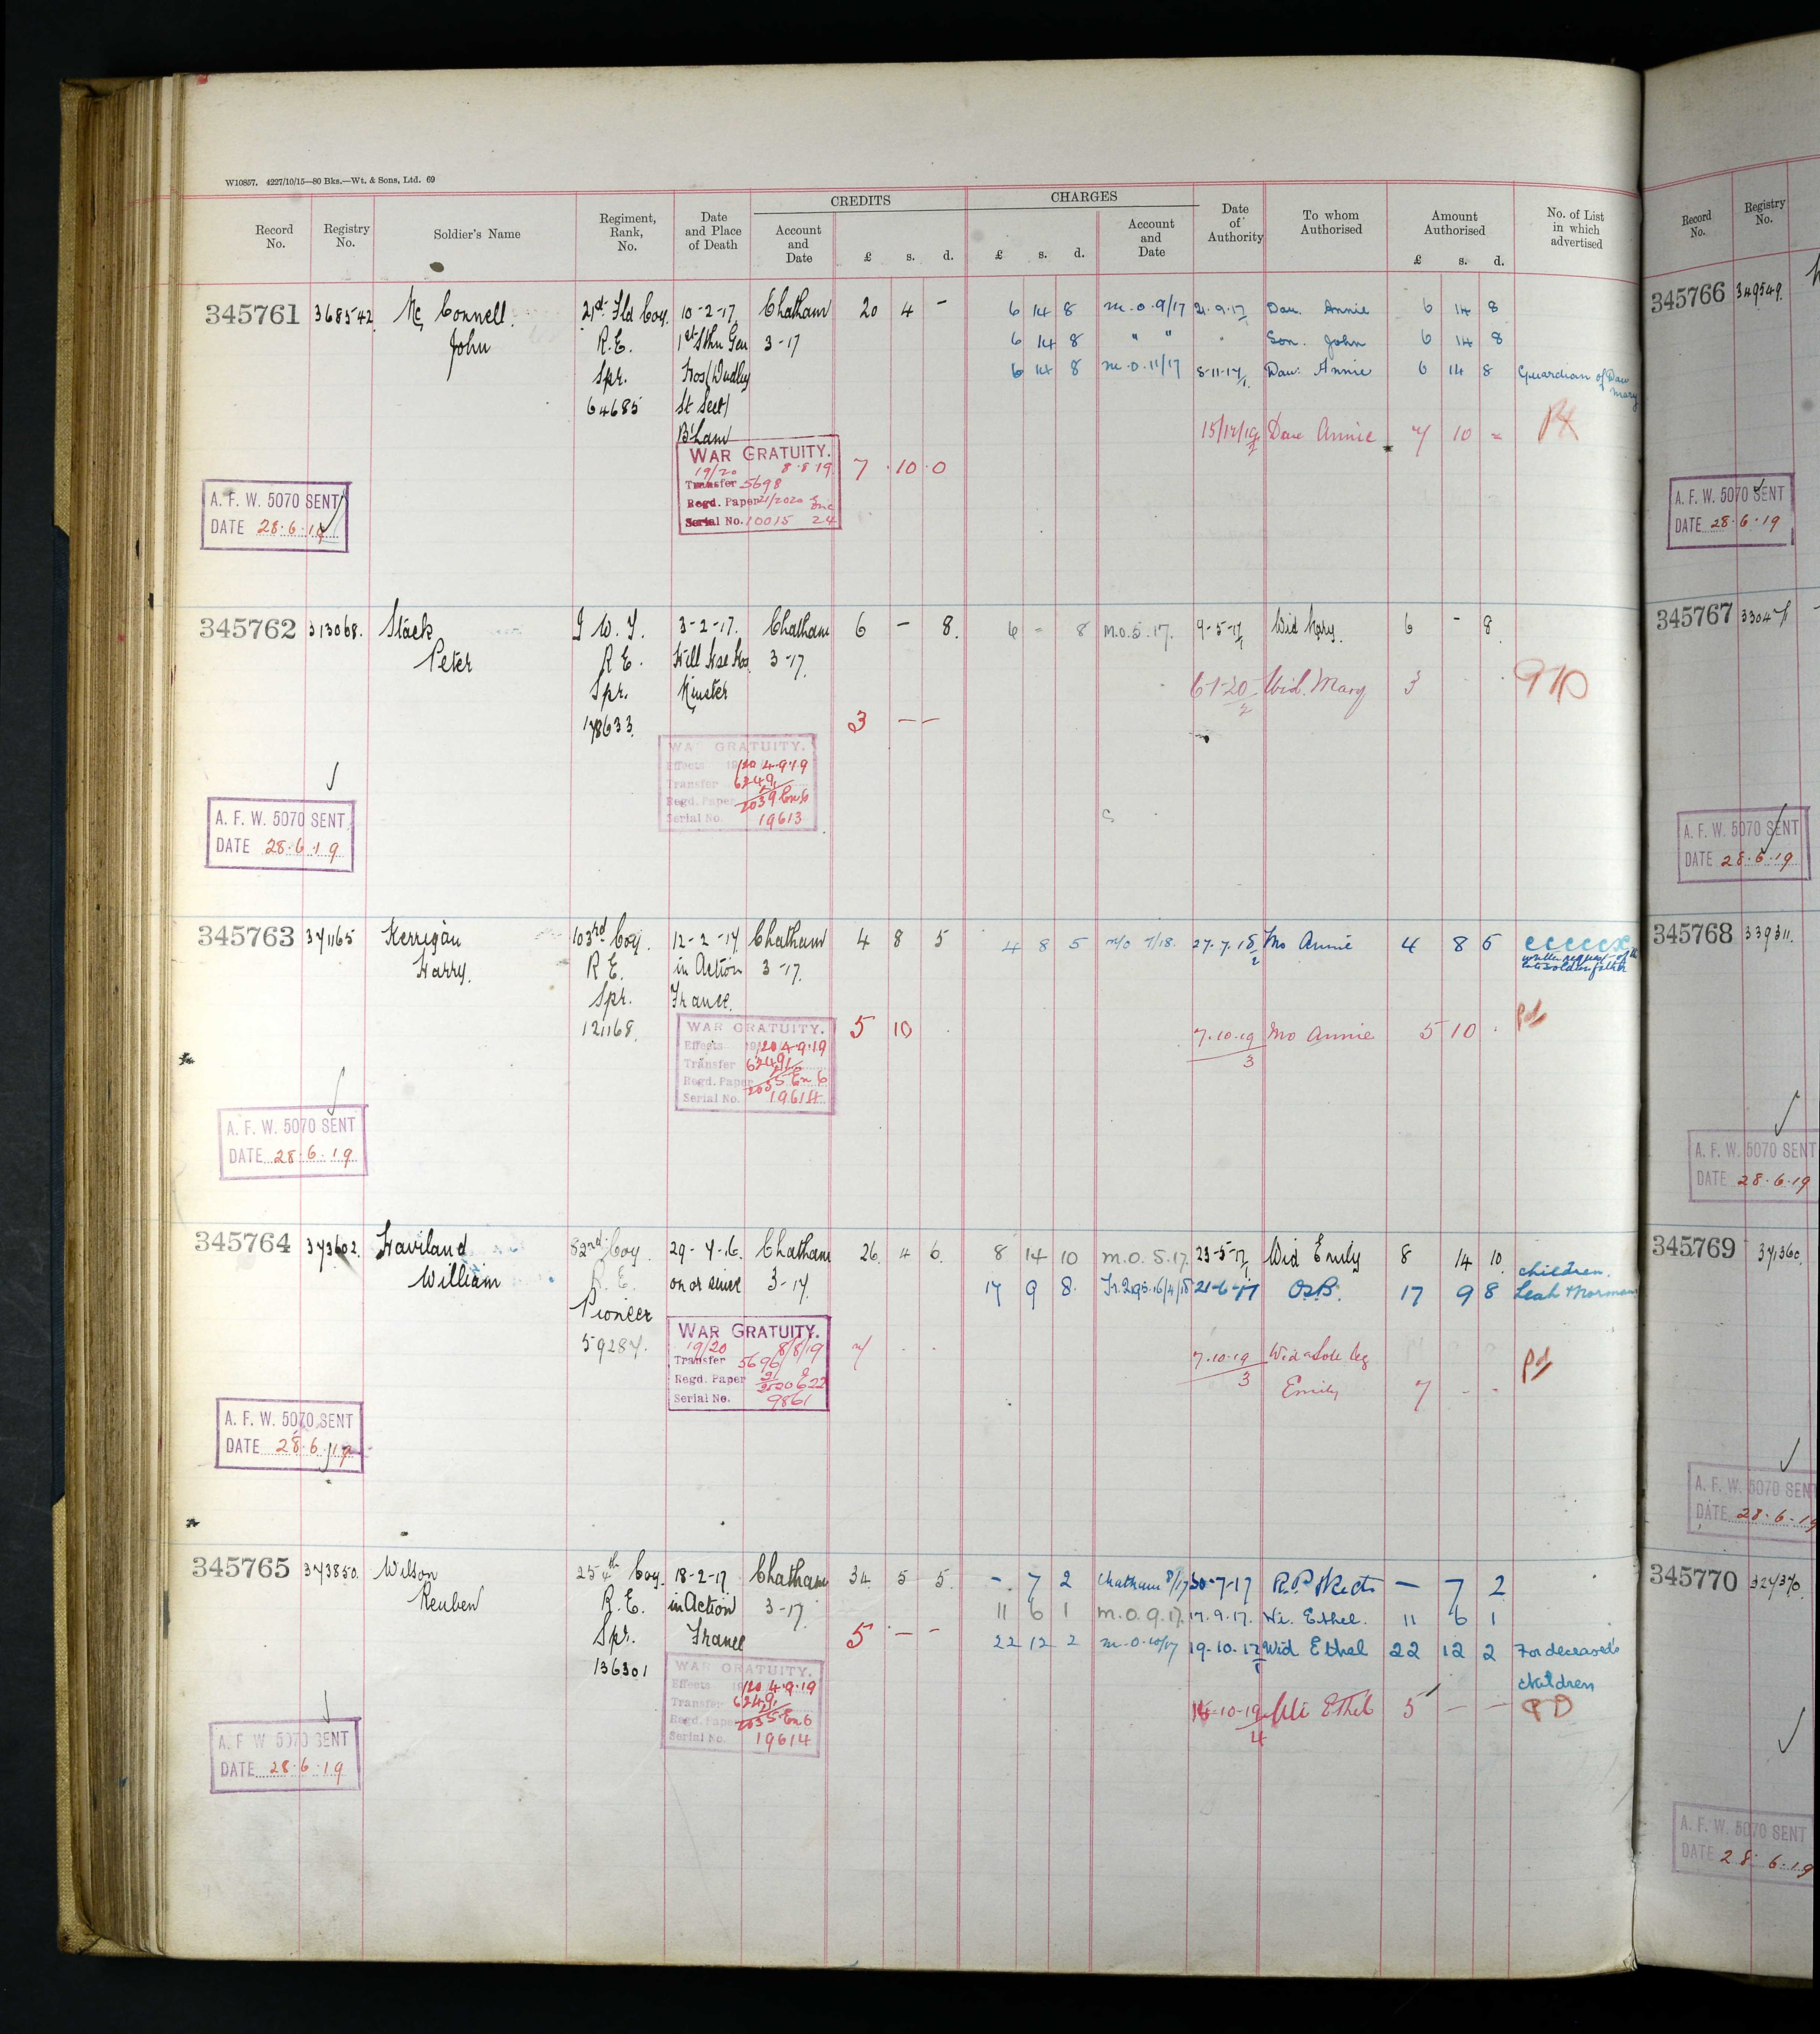 W10857. 4227/10/15—80 Bks.—Wt. & Sons, Ltd. 69
CREDITS CHARGES
Record No. Registry No. Soldier's Name Regiment, Rank, No. Date and Place of Death Account and Date £ s. d. £ s. d. Account and Date Date of Authority To whom Authorised Amount Authorised £ s. d. No. of List in which advertised
345761 368542 Mc Connell. 21st Fld Coy. 10-2-17 Chatham 20 4 - 6 14 8 m.o. 9/17 21.9.17 Dau. Annie 6 14 8
John R.E. 1st Sthn Gen 3-17 6 14 8 " " Son. John 6 14 8
Spr. Hos (Dudley 6 14 8 m.o. 11/17 8-11-17 Dau. Annie 6 14 8 Guardian of Dau Mary
64685 St Sect)
B'ham 15/12/19 Dau Annie 7 10 =
WAR GRATUITY.
19/20 8.8.19 7 . 10 . 0
Transfer 5698
Regd. Paper 21/2020
Serial No. 10015 24
A. F. W. 5070 SENT
DATE 28.6.19
345762 313068. Stack 3-2-17. Chatham 6 - 8. 6 - 8 m.o. 5.17. 9-5-17 Wid Mary. 6 - 8
Peter R E. Mill Hse Hos 3-17.
Spr. Minster 6-1-20 Wid. Mary 3
178633. 3 - -
WAR GRATUITY.
Effects 19/20 4.9.19
Transfer 6249
Regd. Paper 2039 En 6
Serial No. 19613
A. F. W. 5070 SENT
DATE 28.6.19
345763 371165 Kerrigan 103rd Coy. 12-2-17 Chatham 4 8 5 4 8 5 m/o 7/18. 27.7.18 Mo Annie 4 8 5
Harry. R E. in Action 3-17. written request of
Spr. France.
121168. 5 10 7.10.19 Mo Annie 5 10 .
3
WAR GRATUITY.
Effects 19/20 4.9.19
Transfer 6249
Regd. Paper 2035 En 6
Serial No. 19614
A. F. W. 5070 SENT
DATE 28.6.19
345764 373602. Haviland 82nd Coy. 29-7-16. Chatham 26 4 6. 8 14 10 m.o. 5.17. 23-5-17 Wid Emily 8 14 10. children.
William R.E. on or since 3-17 17 9 8. 21-6-17 17 9 8 Leah & Norman
Pioneer
59287.
WAR GRATUITY.
19/20 8/8/19 7 . . 7.10.19 Wid & Sole leg
Transfer 5696 3 Emily 7 - -
Regd. Paper
Serial No. 9861
A. F. W. 5070 SENT
DATE 28.6.19
345765 373850. Wilson 254th Coy. 18-2-17 Chatham 34 5 5. - 7 2 Chatham 8/17 30-7-17 - 7 2
Reuben R.E. in Action 3-17. 11 6 1 m.o. 9.17. 17.9.17. Wi. Ethel. 11 6 1
Spr. France 5 - - 22 12 2 m.o. 10/17 19-10-17 Wid Ethel 22 12 2 For deceased's
136301 children
WAR GRATUITY. 14-10-19 Wi Ethel 5 - -
Effects 19/20 4.9.19 4
Transfer 6249
Regd. Paper 2035 En 6
Serial No. 19614
A. F. W. 5070 SENT
DATE 28.6.19
Record No. Registry No.
345766 349549.
A. F. W. 5070 SENT
DATE 28.6.19
345767
A. F. W. 5070 SENT
DATE 28.6.19
345768 339311.
A. F. W. 5070 SENT
DATE 28.6.19
345769 371360.
A. F. W. 5070 SEN
DATE 28.6.19
345770 327370.
A. F. W. 5070 SENT
DATE 28.6.19